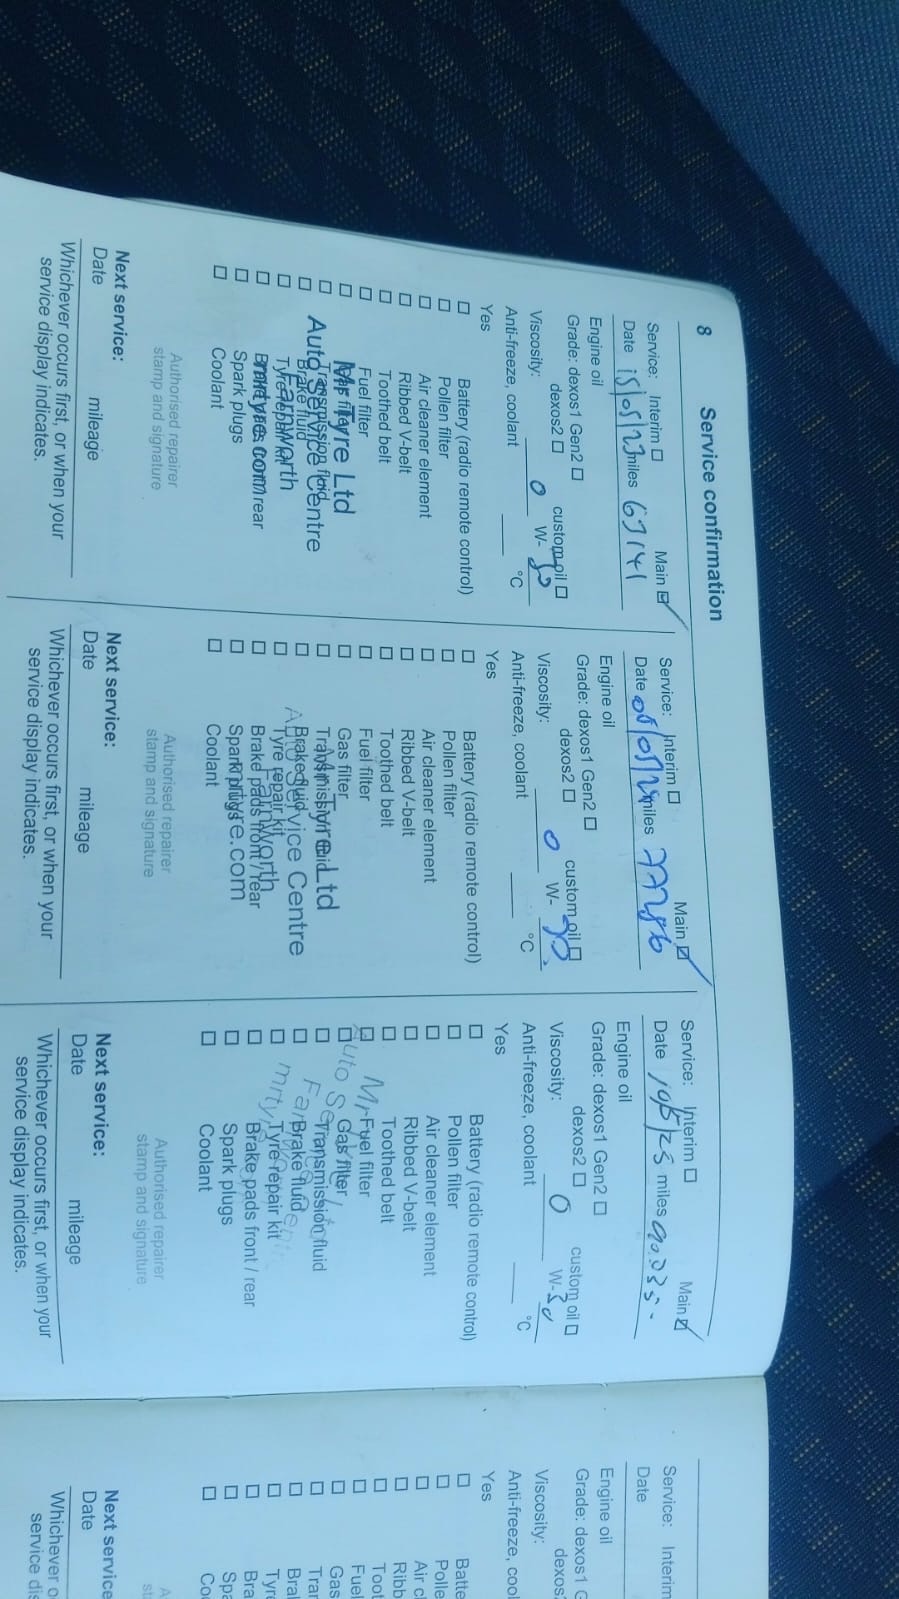 8 Service confirmation
Service: Interim ☐ Main ☑
Date 15/05/23 miles 67141
Engine oil
Grade: dexos1 Gen2 ☐
dexos2 ☐ custom oil ☐
Viscosity: 0 W-30
Anti-freeze, coolant °C
Yes
☐ Battery (radio remote control)
☐ Pollen filter
☐ Air cleaner element
☐ Ribbed V-belt
☐ Toothed belt
☐ Fuel filter
☐ Gas filter
☐ Transmission fluid
☐ Brake fluid
☐ Tyre repair kit
☐ Brake pads front / rear
☐ Spark plugs
☐ Coolant
Mr Tyre Ltd
Auto Service Centre
Farnworth
mrtyre.com
Authorised repairer
stamp and signature
Next service:
Date mileage
Whichever occurs first, or when your
service display indicates.
Service: Interim ☐ Main ☑
Date miles 77286
Engine oil
Grade: dexos1 Gen2 ☐
dexos2 ☐ custom oil ☐
Viscosity: 0 W-30
Anti-freeze, coolant °C
Yes
☐ Battery (radio remote control)
☐ Pollen filter
☐ Air cleaner element
☐ Ribbed V-belt
☐ Toothed belt
☐ Fuel filter
☐ Gas filter
☐ Transmission fluid
☐ Brake fluid
☐ Tyre repair kit
☐ Brake pads front / rear
☐ Spark plugs
☐ Coolant
Mr Tyre Ltd
Auto Service Centre
Farnworth
mrtyre.com
Authorised repairer
stamp and signature
Next service:
Date mileage
Whichever occurs first, or when your
service display indicates.
Service: Interim ☐ Main ☑
Date miles 90.035-
Engine oil
Grade: dexos1 Gen2 ☐
dexos2 ☐ custom oil ☐
Viscosity: 0 W-30
Anti-freeze, coolant °C
Yes
☐ Battery (radio remote control)
☐ Pollen filter
☐ Air cleaner element
☐ Ribbed V-belt
☐ Toothed belt
☐ Fuel filter
☐ Gas filter
☐ Transmission fluid
☐ Brake fluid
☐ Tyre repair kit
☐ Brake pads front / rear
☐ Spark plugs
☐ Coolant
Mr
Auto
Authorised repairer
stamp and signature
Next service:
Date mileage
Whichever occurs first, or when your
service display indicates.
Service: Interim
Date
Engine oil
Grade: dexos1 G
dexos
Viscosity:
Anti-freeze, cool
Yes
☐ Batte
☐ Polle
☐ Air cl
☐ Ribb
☐ Toot
☐ Fuel
☐ Gas
☐ Trar
☐ Bral
☐ Tyre
☐ Bra
☐ Spa
☐ Co
A
st
Next service
Date
Whichever o
service dis